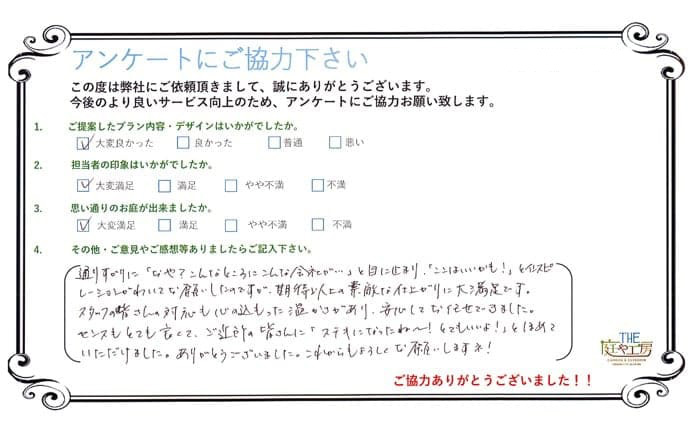 アンケートにご協力下さい
この度は弊社にご依頼頂きまして、誠にありがとうございます。
今後のより良いサービス向上のため、アンケートにご協力お願い致します。
1. ご提案したプラン内容・デザインはいかがでしたか。
大変良かった 良かった 普通 悪い
2. 担当者の印象はいかがでしたか。
大変満足 満足 やや不満 不満
3. 思い通りのお庭が出来ましたか。
大変満足 満足 やや不満 不満
4. その他・ご意見やご感想等ありましたらご記入下さい。
通りすがりに「なや?こんなところにこんな会社が…」と目に止まり、「ここはいいかも!」とインスピ
レーションがわいてお願いしたのですが、期待以上の素敵な仕上がりに大満足です。
スタッフの皆さんの対応も心の込もった温かさがあり、安心しておまかせできました。
センスもとても良くて、ご近所の皆さんに「ステキになったね〜!とてもいいよ!」とほめて
いただけました。ありがとうございました。これからもよろしくお願いしますネ!
THE
庭や工房
ご協力ありがとうございました!!